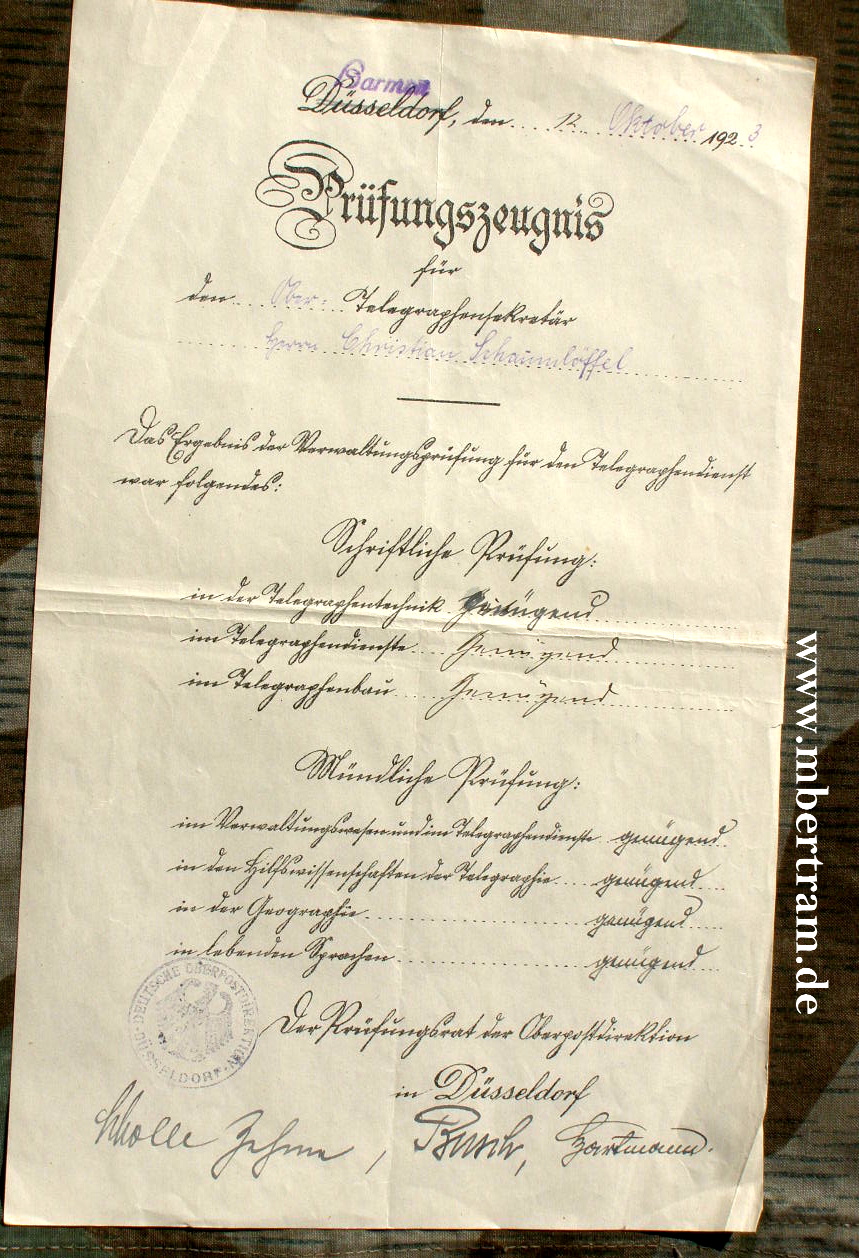 Barmen
Düsseldorf, den 12. Oktober 1923
Prüfungszeugnis
für
den Ober-Telegraphensekretär
Herrn Christian Schaumlöffel
Das Ergebnis der Verwaltungsprüfung für den Telegraphendienst
war folgendes:
Schriftliche Prüfung:
in der Telegraphentechnik genügend
im Telegraphendienste Genügend
im Telegraphenbau Genügend
Mündliche Prüfung:
im Verwaltungswesen und im Telegraphendienste genügend
in den Hilfswissenschaften der Telegraphie genügend
in der Geographie genügend
in lebenden Sprachen genügend
DEUTSCHE OBERPOSTDIREKTION DÜSSELDORF
Der Prüfungsrat der Oberpostdirektion
in Düsseldorf
Scholle Zehme, Busch, Hartmann.
www.mbertram.de